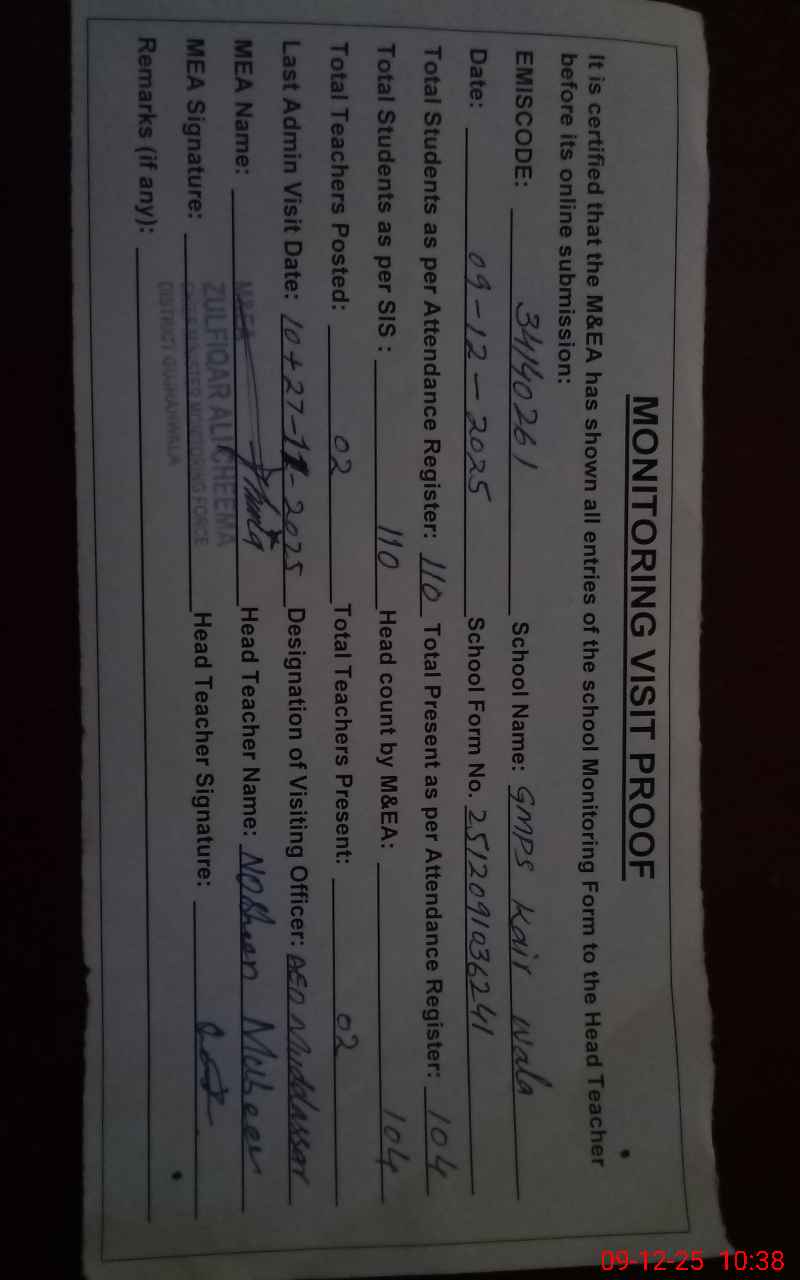 MONITORING VISIT PROOF
It is certified that the M&EA has shown all entries of the school Monitoring Form to the Head Teacher
before its online submission:
EMISCODE: 34140261 School Name: GMPS Kair wala
Date: 09-12-2025 School Form No. 2512091036241
Total Students as per Attendance Register: 110 Total Present as per Attendance Register: 104
Total Students as per SIS : 110 Head count by M&EA: 104
Total Teachers Posted: 02 Total Teachers Present: 02
Last Admin Visit Date: 10+27-11-2025 Designation of Visiting Officer: AEO Muddassar
MEA Name: Head Teacher Name: NOSheen
MEA Signature: Head Teacher Signature:
M&EA
ZULFIQAR ALI CHEEMA
CHIEF MINISTER MONITORING FORCE
DISTRICT GUJRANWALA
Remarks (if any):
09-12-25 10:38